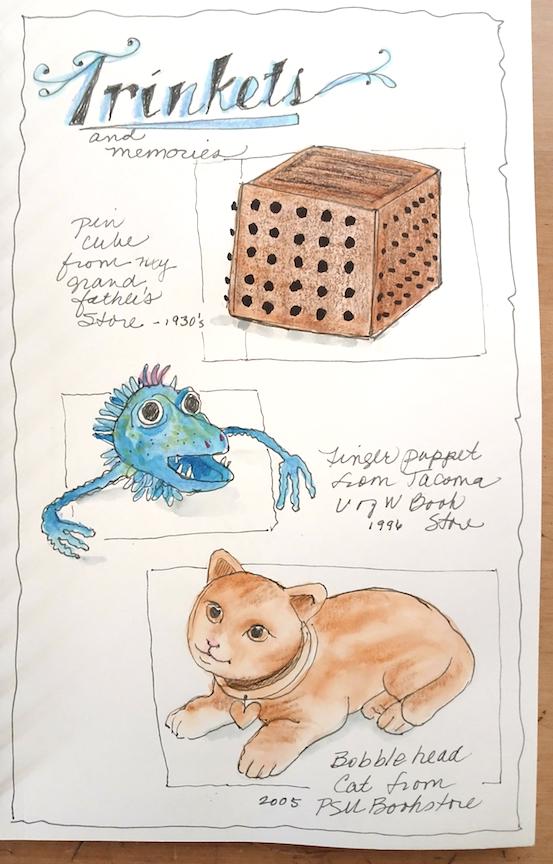 Trinkets
and
memories
pin
cube
from my
grand
father's
Store - 1930's
Finger puppet
from Tacoma
U of W Book
1996 Store
Bobblehead
Cat from
2005 PSU Bookstore